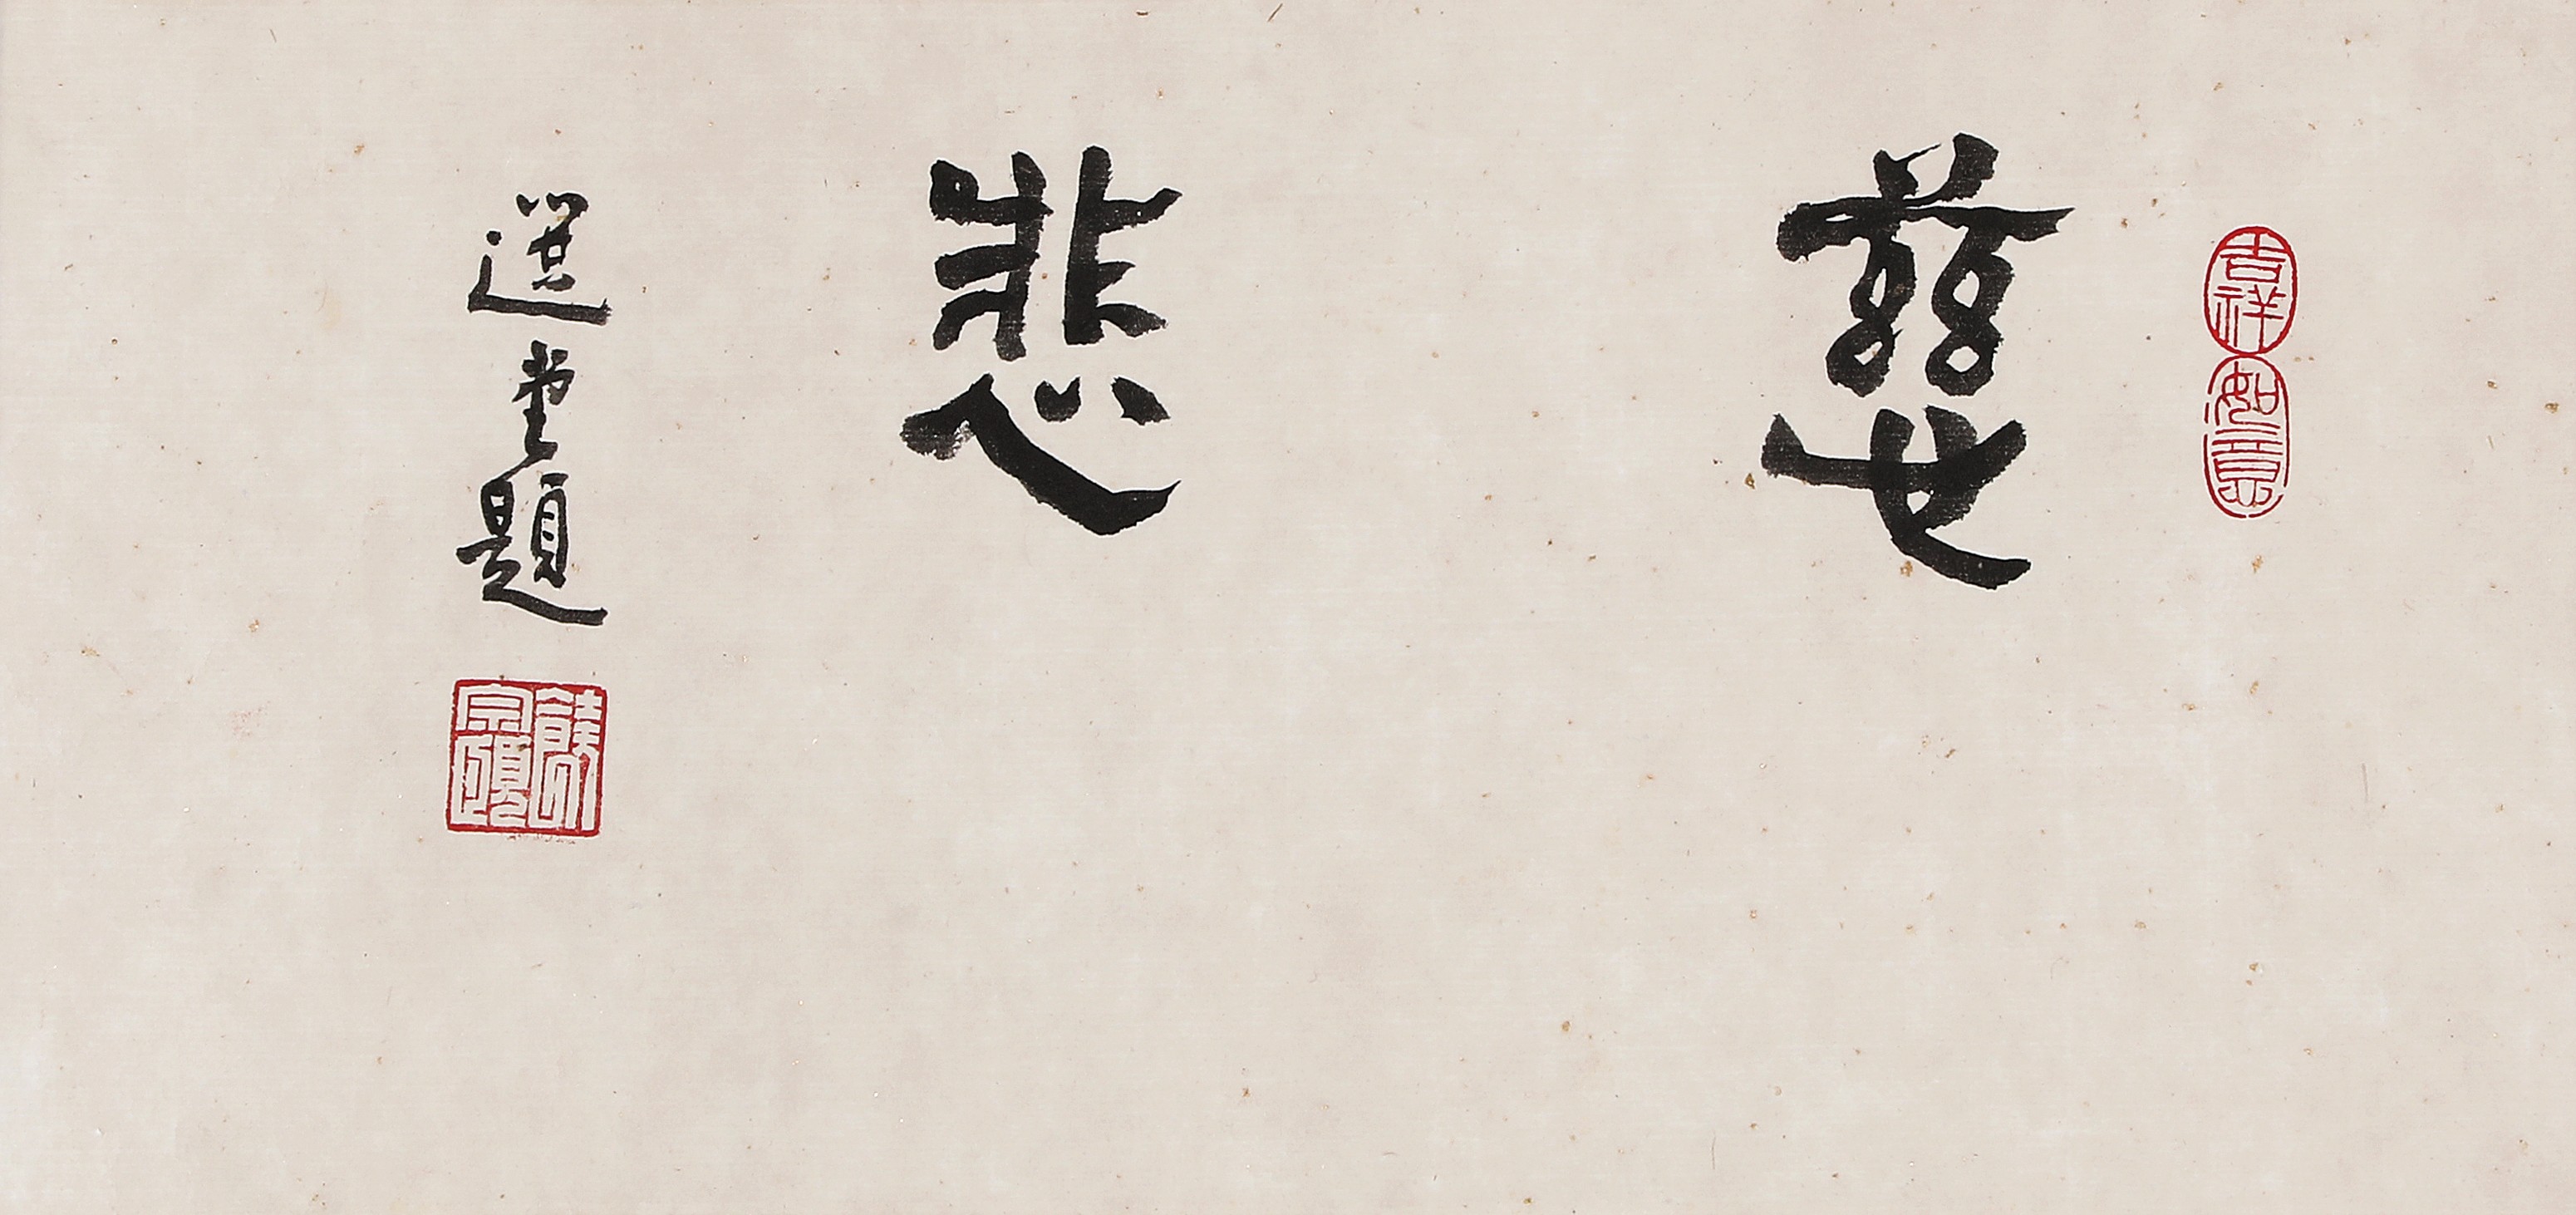 吉祥
如意
慈
悲
選堂題
饒宗頤